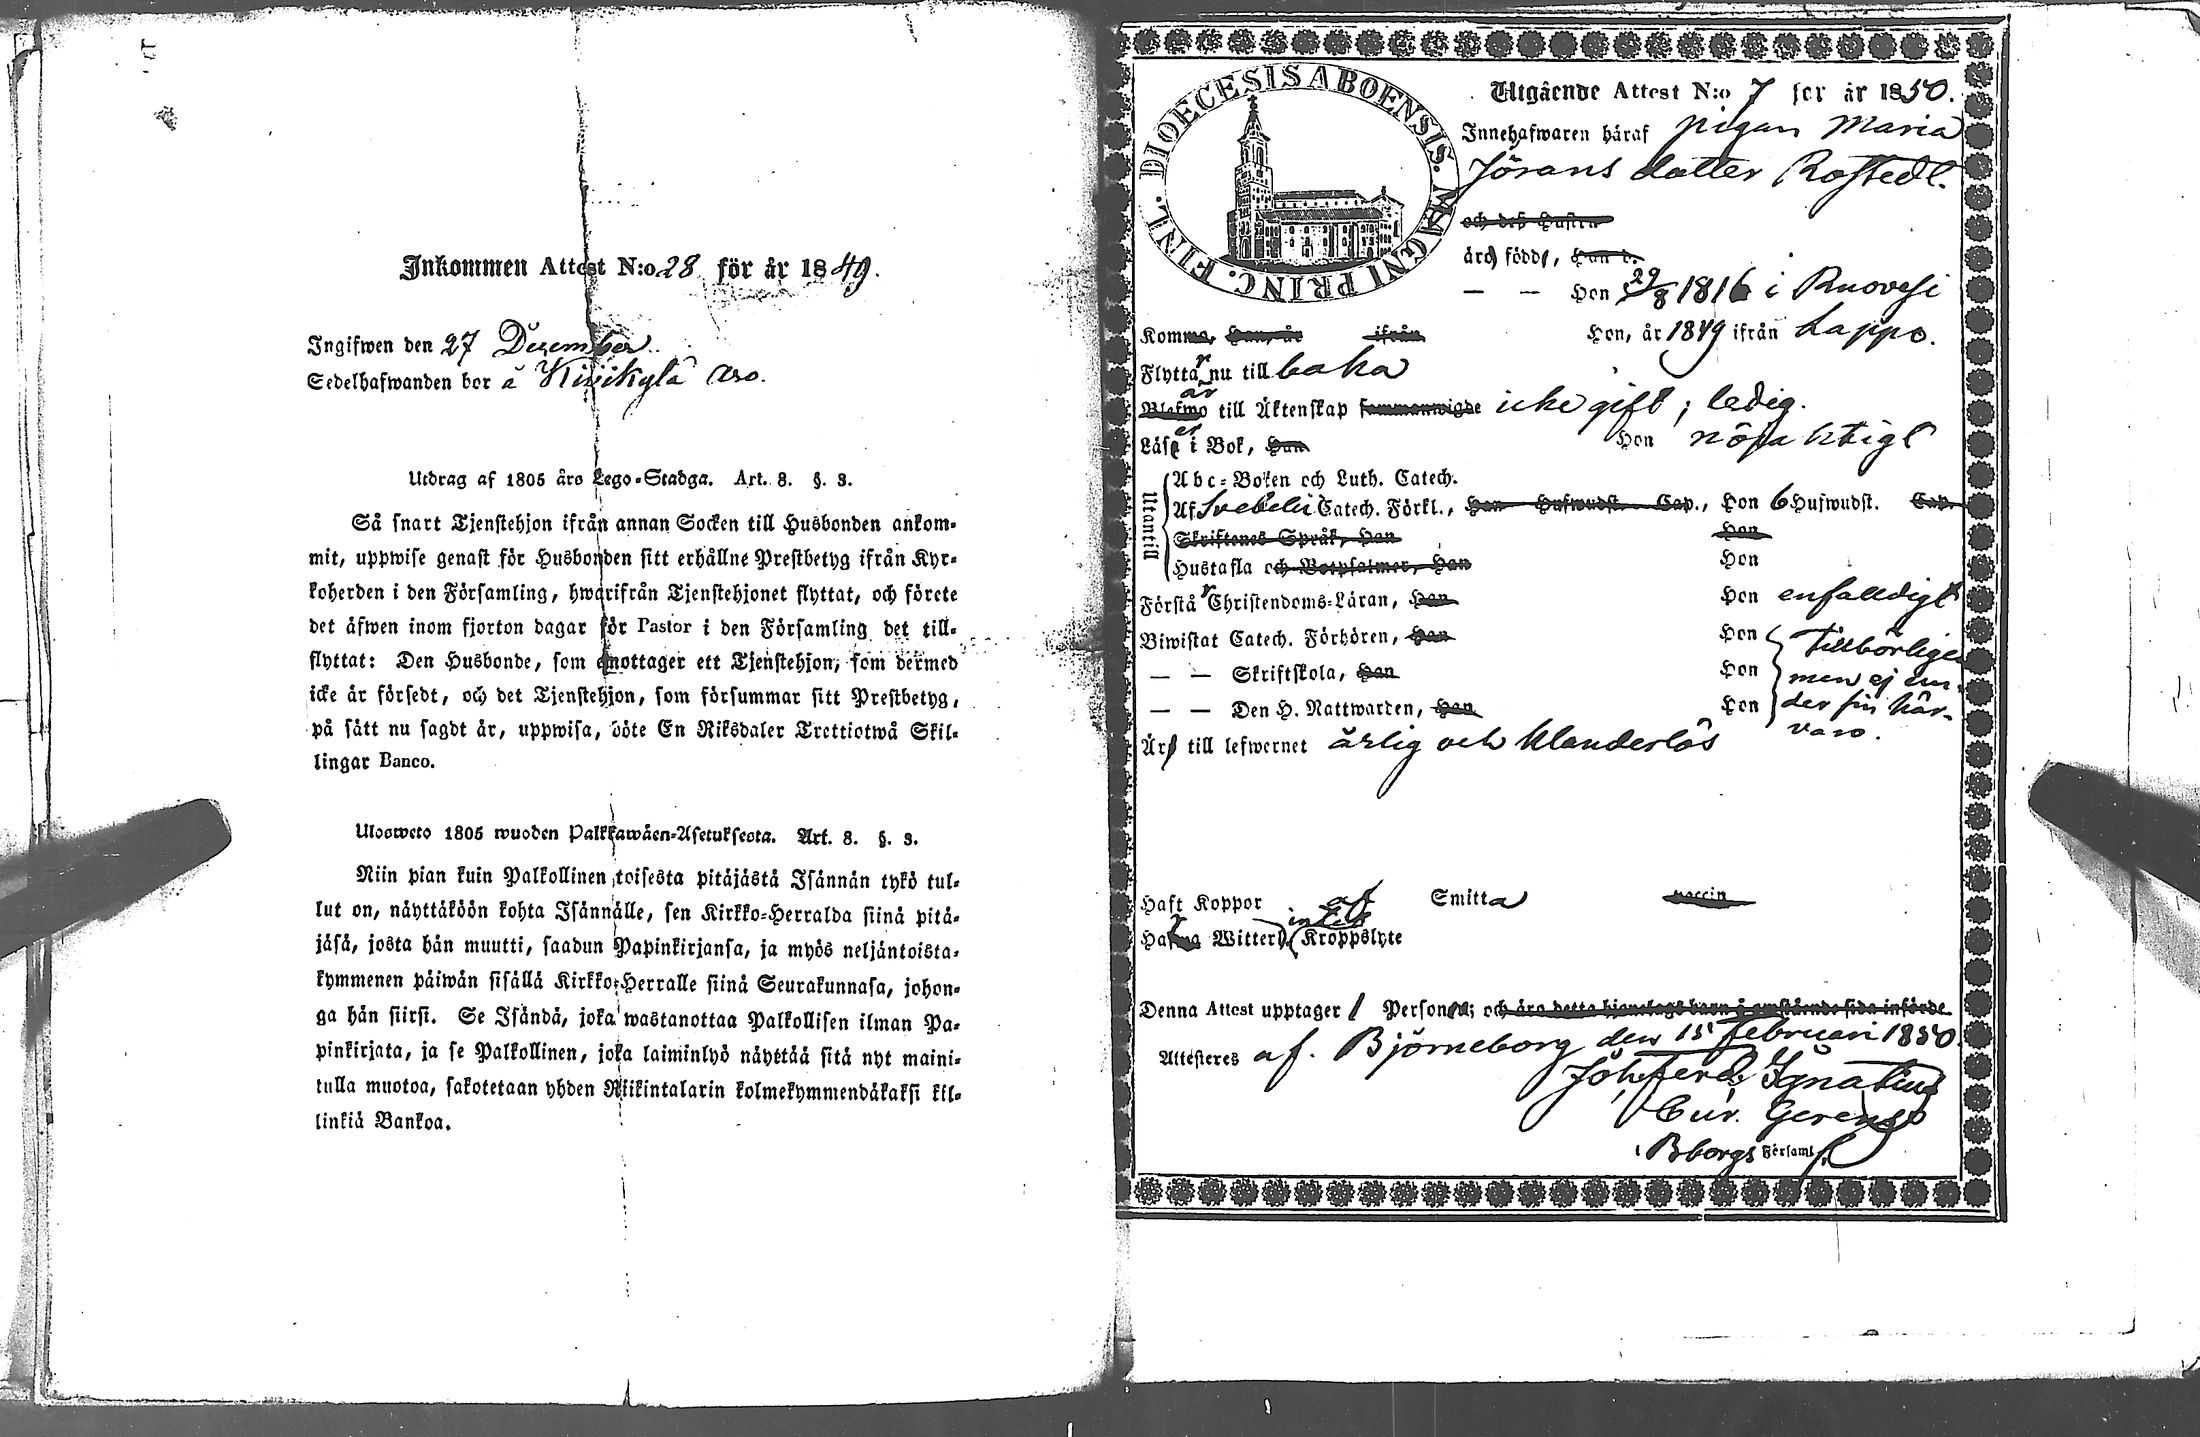 Inkommen Attest N:o 28 för år 1849.
Ingifwen den 27 December
Sedelhafwanden bor å Kivikylä
Utdrag af 1805 års Lego-Stadga. Art. 8. §. 3.
Så snart Tjenstehjon ifrån annan Socken till Husbonden ankom-
mit, uppwise genast för Husbonden sitt erhållne Prestbetyg ifrån Kyr-
koherden i den Församling, hwarifrån Tjenstehjonet flyttat, och förete
det äfwen inom fjorton dagar för Pastor i den Församling det till-
flyttat: Den Husbonde, som emottager ett Tjenstehjon, som dermed
icke är försedt, och det Tjenstehjon, som försummar sitt Prestbetyg,
på sätt nu sagdt är, uppwisa, böte En Riksdaler Trettiotwå Skil-
lingar Banco.
Ulosweto 1805 wuoden Palkkawäen-Asetuksesta. Art. 8. §. 3.
Niin pian kuin Palkollinen toisesta pitäjästä Isännän tykö tul-
lut on, näyttäköön kohta Isännälle, sen Kirkko-Herralda siinä pitä-
jäsä, josta hän muutti, saadun Papinkirjansa, ja myös neljäntoista-
kymmenen päiwän sisällä Kirkko-Herralle siinä Seurakunnasa, johon-
ga hän siirsi. Se Isändä, joka wastanottaa Palkollisen ilman Pa-
pinkirjata, ja se Palkollinen, joka laiminlyö näyttää sitä nyt maini-
tulla muotoa, sakotetaan yhden Riikintalarin kolmekymmendäkaksi kil-
linkiä Bankoa.
DIOECESIS ABOENSIS. MAGNI PRINC. FINL.
Utgående Attest N:o 7 för år 1850.
Innehafwaren häraf pigan Maria
Jörans dotter Rostedt.
och des Hustru
är född, Han d.
— — Hon 29/8 1816 i Ruovesi
Komma, Han, år ifrån Hon, år 1849 ifrån Lappo.
Flyttar nu till baka
Blefwo är till Äktenskap sammanwigde icke gift, ledig.
Läser i Bok, Han Hon nöjaktigt
Utantill
Abc-Boken och Luth. Catech.
Af Svebelii Catech. Förkl., Han Hufwudst. Cap., Hon 6 Hufwudst. Cap.
Skriftenes Språk, Han Hon
Hustafla och Botpsalmer, Han Hon
Förstår Christendoms-Läran, Han Hon enfalldigt
Biwistat Catech. Förhören, Han Hon tillbörligen
— — Skriftskola, Han Hon men ej un-
— — Den H. Nattwarden, Han Hon der sin här-
varo.
Är till lefwernet ärlig och klanderlös
Haft Koppor af Smitta vaccin
Witterl. intet Kroppslyte
Denna Attest upptager 1 Person; och äro detta hjonelags barn å omstående sida införde.
Attesteres af. Björneborg den 15 Februari 1850.
Joh. Ferd. Ignatius
Cur. Gerens
i Bborgs Församl.